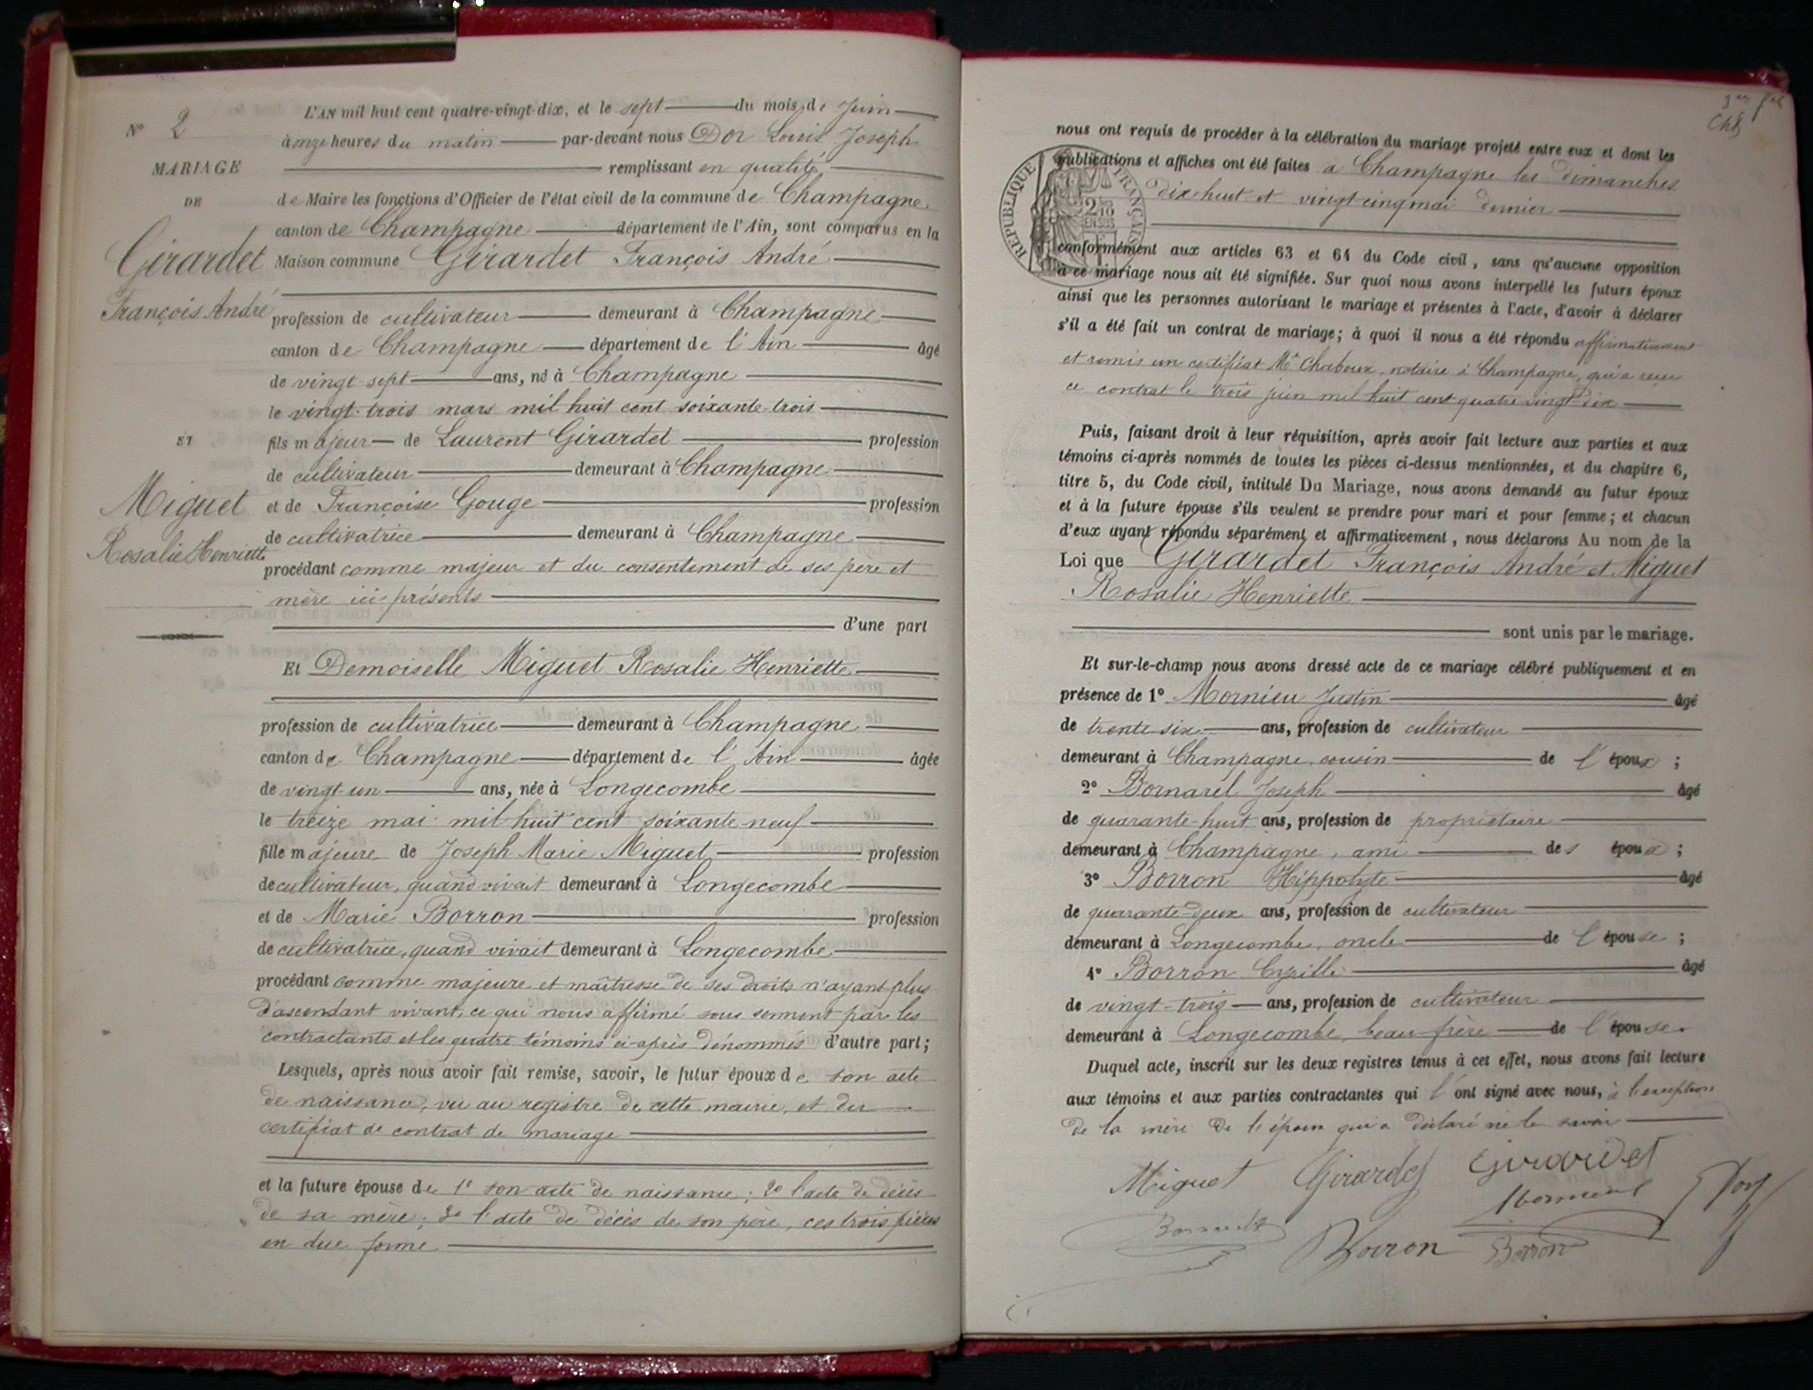 N° 2
MARIAGE
DE
Girardet
François André
ET
Miguet
Rosalie Henriette
L'AN mil huit cent quatre-vingt-dix, et le sept du mois de Juin
à onze heures du matin par-devant nous Dor Louis Joseph
remplissant en qualité
de Maire les fonctions d'Officier de l'état civil de la commune de Champagne
canton de Champagne département de l'Ain, sont comparus en la
Maison commune Girardet François André
profession de cultivateur demeurant à Champagne
canton de Champagne département de l'Ain âgé
de vingt sept ans, né à Champagne
le vingt-trois mars mil huit cent soixante trois
fils majeur de Laurent Girardet profession
de cultivateur demeurant à Champagne
et de Françoise Gouge profession
de cultivatrice demeurant à Champagne
procédant comme majeur et du consentement de ses père et
mère ici présents
d'une part
Et Demoiselle Miguet Rosalie Henriette
profession de cultivatrice demeurant à Champagne
canton de Champagne département de l'Ain âgée
de vingt un ans, née à Longecombe
le treize mai mil huit cent soixante neuf
fille majeure de Joseph Marie Miguet profession
de cultivateur, quand vivait demeurant à Longecombe
et de Marie Borron profession
de cultivatrice, quand vivait demeurant à Longecombe
procédant comme majeure et maîtresse de ses droits n'ayant plus
d'ascendant vivant, ce qui nous affirmé sous serment par les
contractants et les quatre témoins ci-après dénommés d'autre part;
Lesquels, après nous avoir fait remise, savoir, le futur époux de son acte
de naissance, vu au registre de cette mairie, et du
certifiat de contrat de mariage
et la future épouse de 1° son acte de naissance; 2° l'acte de décès
de sa mère; 3° l'acte de décès de son père, ces trois pièces
en due forme
nous ont requis de procéder à la célébration du mariage projeté entre eux et dont les
publications et affiches ont été faites à Champagne les dimanches
dix huit et vingt cinq mai dernier
RÉPUBLIQUE FRANÇAISE
conformément aux articles 63 et 64 du Code civil, sans qu'aucune opposition
à ce mariage nous ait été signifiée. Sur quoi nous avons interpellé les futurs époux
ainsi que les personnes autorisant le mariage et présentes à l'acte, d'avoir à déclarer
s'il a été fait un contrat de mariage; à quoi il nous a été répondu affirmativement
et remis un certifiat Me Chaboux, notaire à Champagne, qui a reçu
ce contrat le trois juin mil huit cent quatre vingt dix
Puis, faisant droit à leur réquisition, après avoir fait lecture aux parties et aux
témoins ci-après nommés de toutes les pièces ci-dessus mentionnées, et du chapitre 6,
titre 5, du Code civil, intitulé Du Mariage, nous avons demandé au futur époux
et à la future épouse s'ils veulent se prendre pour mari et pour femme; et chacun
d'eux ayant répondu séparément et affirmativement, nous déclarons Au nom de la
Loi que Girardet François André et Miguet
Rosalie Henriette
sont unis par le mariage.
Et sur-le-champ nous avons dressé acte de ce mariage célébré publiquement et en
présence de 1° Mornieu Justin âgé
de trente six ans, profession de cultivateur
demeurant à Champagne, cousin de l'époux;
2° Bornarel Joseph âgé
de quarante-huit ans, profession de propriétaire
demeurant à Champagne, ami des époux;
3° Borron Hippolyte âgé
de quarante-deux ans, profession de cultivateur
demeurant à Longecombe, oncle de l'épouse;
4° Borron Cyrille âgé
de vingt-trois ans, profession de cultivateur
demeurant à Longecombe, beau-frère de l'épouse.
Duquel acte, inscrit sur les deux registres tenus à cet effet, nous avons fait lecture
aux témoins et aux parties contractantes qui l'ont signé avec nous, à l'exception
de la mère de l'époux qui a déclaré ne le savoir
Miguet Girardet Girardet
Mornieu Dor
Borron Borron